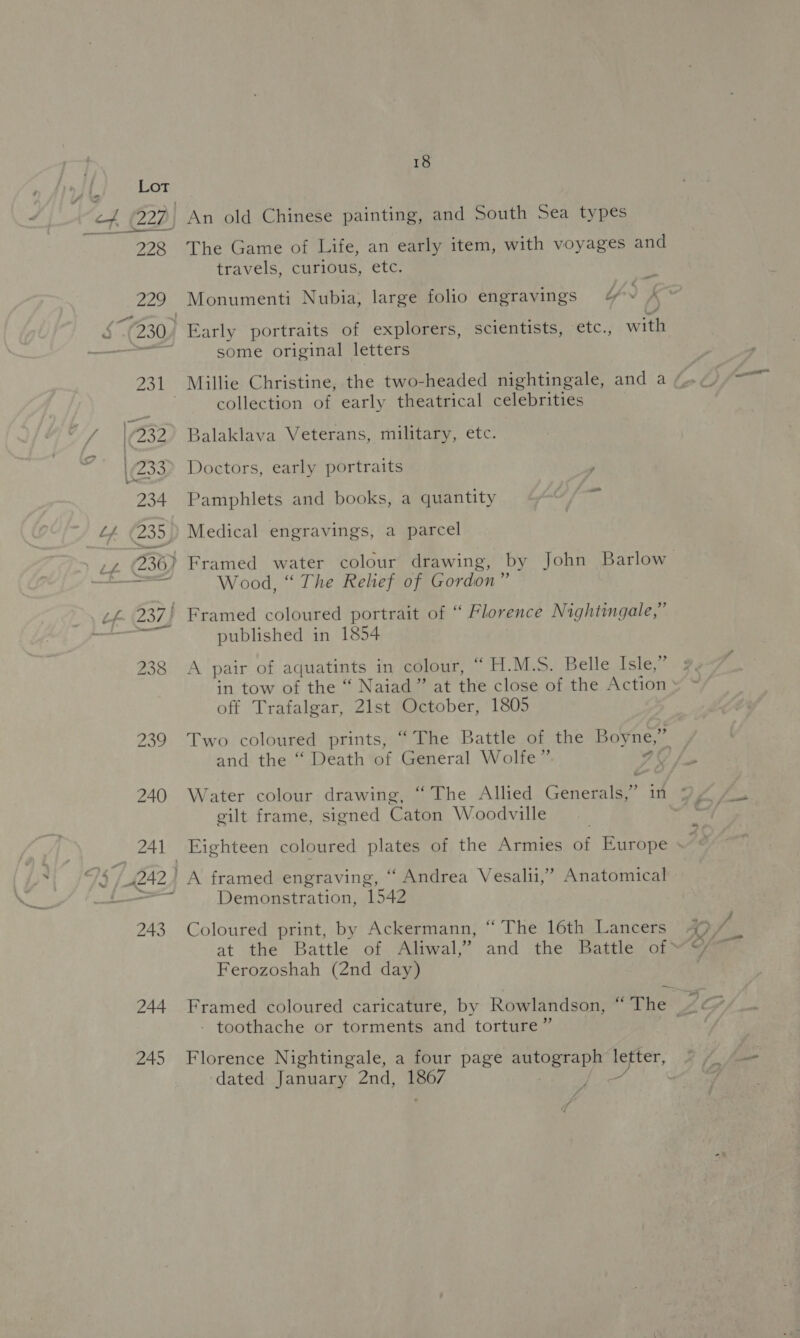 18
Lot
227 An old Chinese painting, and South Sea types
228 The Game of Life, an early item, with voyages and
travels, curious, etc.
229 Monumenti Nubia, large folio engravings
230 Early portraits of explorers, scientists, etc., with
some original letters
231 Millie Christine, the two-headed nightingale, and a
collection of early theatrical celebrities
232 Balaklava Veterans, military, etc.
233 Doctors, early portraits
234 Pamphlets and books, a quantity
235 Medical engravings, a parcel
236 Framed water colour drawing, by John Barlow
Wood, “ The Relief of Gordon ”
237 Framed coloured portrait of “ Florence Nightingale,”
published in 1854
238 A pair of aquatints in colour, “ H.M.S. Belle Isle,”
in tow of the “ Naiad ” at the close of the Action
off Trafalgar, 21st October, 1805
239 Two coloured prints, “ The Battle of the Boyne,”
and the “ Death of General Wolfe ”
240 Water colour drawing, “ The Allied Generals,” in
gilt frame, signed Caton Woodville
241 Eighteen coloured plates of the Armies of Europe
242 A framed engraving, “ Andrea Vesalii,” Anatomical
Demonstration, 1542
243 Coloured print, by Ackermann, “ The 16th Lancers
at the Battle of Aliwal,” and the Battle of
Ferozoshah (2nd day)
244 Framed coloured caricature, by Rowlandson, “ The
toothache or torments and torture ”
245 Florence Nightingale, a four page autograph letter,
dated January 2nd, 1867